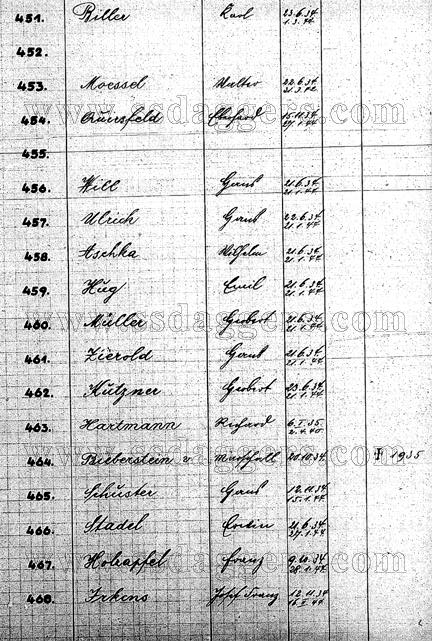 451. Biller Karl 23.6.34 1.3.44
452.
453. Moessel Walter 22.6.34 21.3.42
454. Quirsfeld Eberhard 15.11.34 27.1.44
455.
456. Will Hans 21.6.34 21.1.44
457. Ulrich Hans 22.6.34 21.1.44
458. Aschka Wilhelm 21.6.34 21.1.44
459. Hug Emil 21.6.34 21.1.44
460. Müller Herbert 21.6.34 21.1.44
461. Zierold Hans 21.6.34 21.1.44
462. Kutzner Herbert 23.6.34 21.1.44
463. Hartmann Richard 6.I.35 2.4.40
464. Bieberstein v. Marschall 20.10.34 1935
465. Schuster Hans 12.11.34 15.1.44
466. Stadel Erwin 21.6.34 27.1.44
467. Holzapfel Franz 9.10.34 28.1.42
468. Irkens Josef Franz 12.11.34
www.ssdaggers.com
www.ssdaggers.com
www.ssdaggers.com